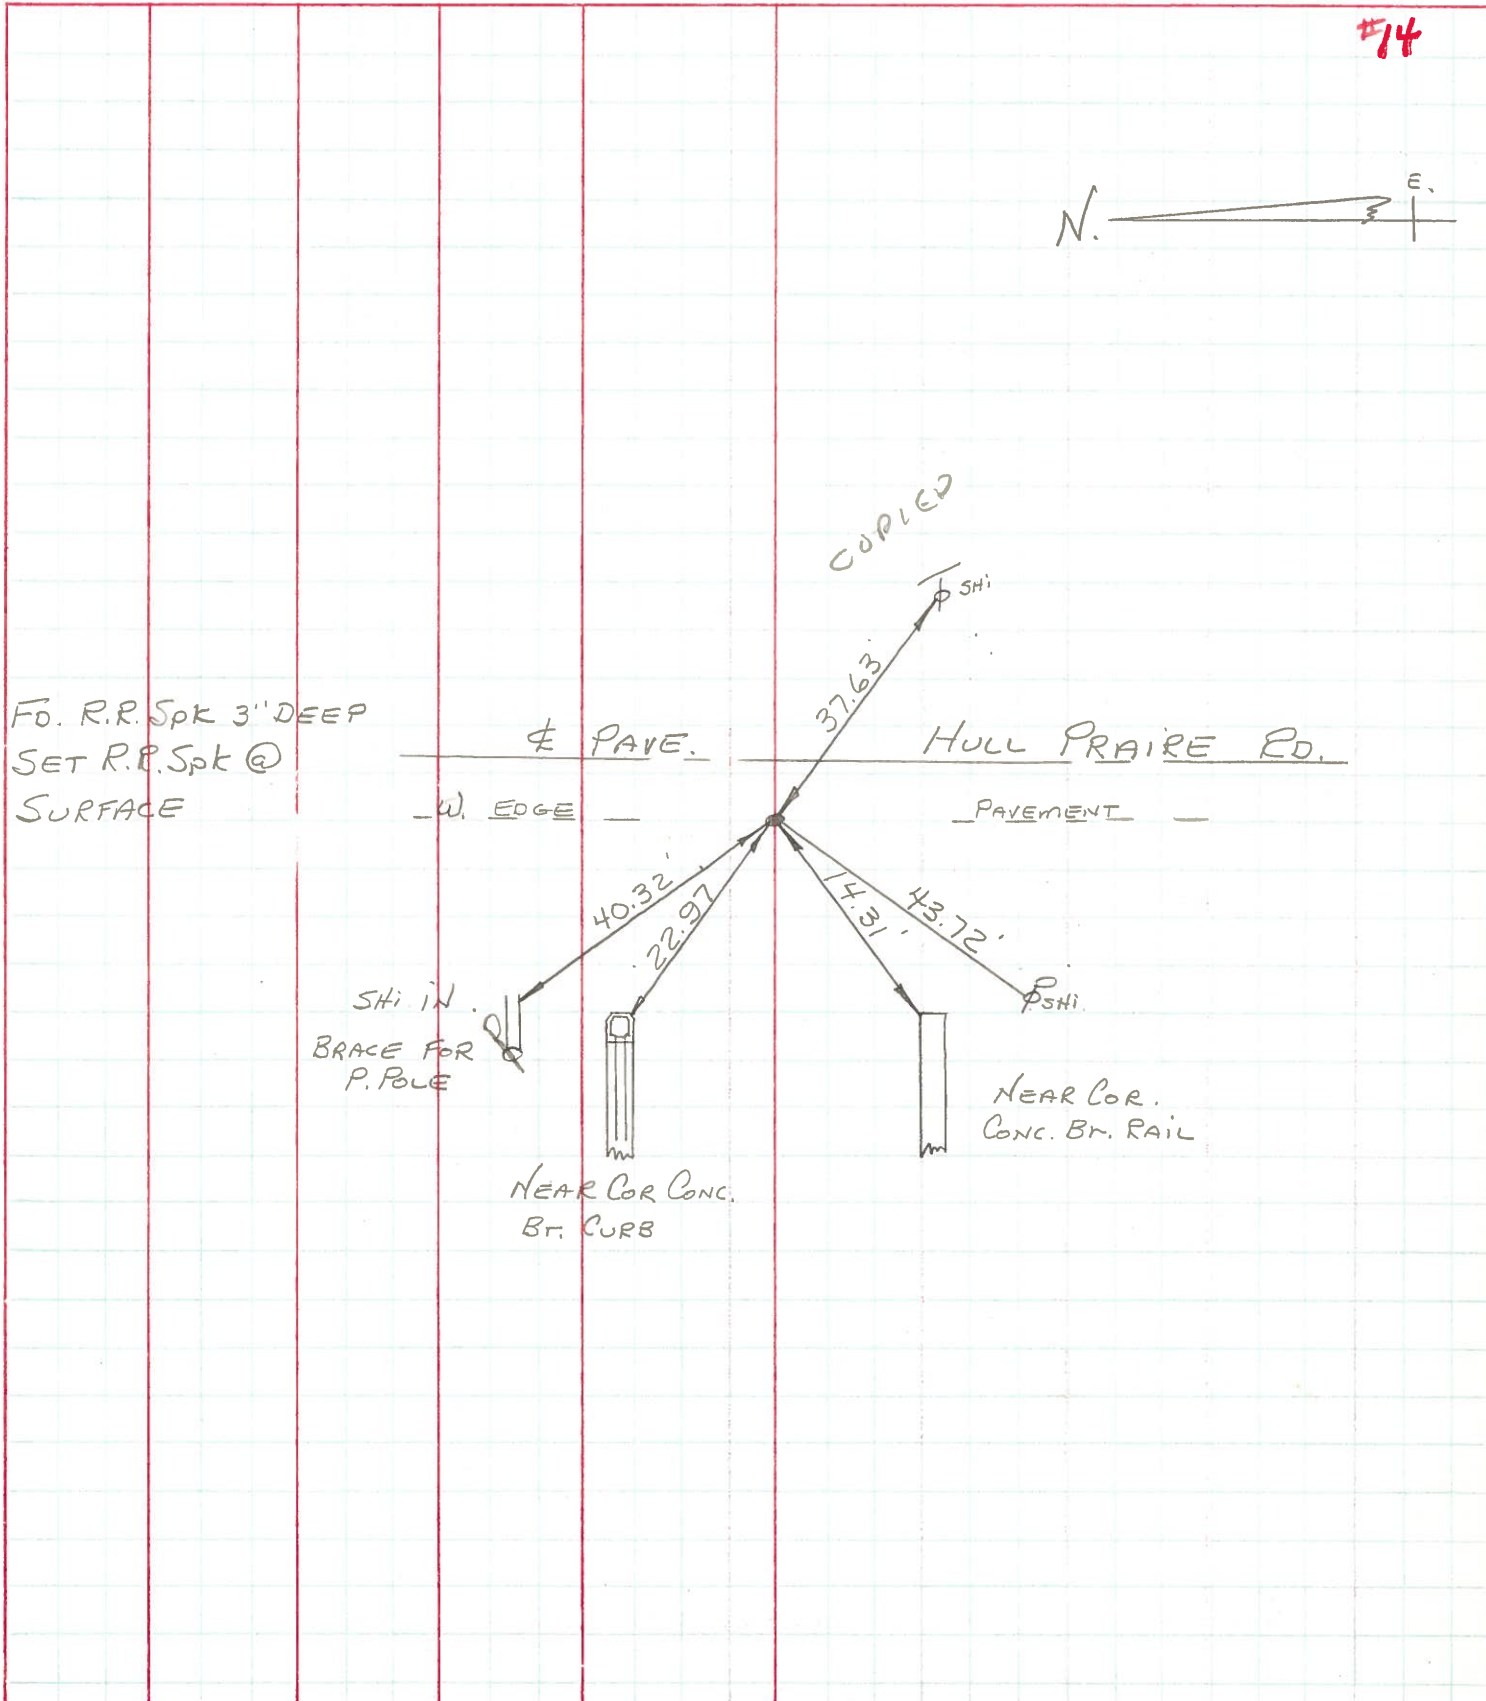 #14
E.
N.
COPIED
SHi
37.63'
FD. R.R. Spk 3" DEEP
SET R.R. Spk @
SURFACE
℄ PAVE.
HULL PRAIRE RD.
W. EDGE
PAVEMENT
40.32'
22.97
14.31'
43.72'
SHi IN
BRACE FOR
P. POLE
SHi
NEAR COR.
CONC. Br. RAIL
NEAR COR CONC.
Br. CURB